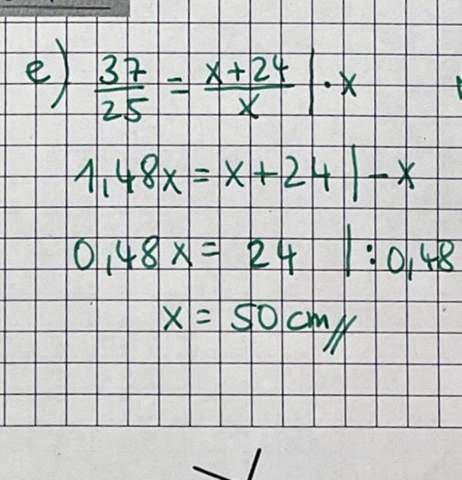 e) 37/25 = x+24/x |·x
1,48x = x+24 |-x
0,48x = 24 |:0,48
x = 50cm//